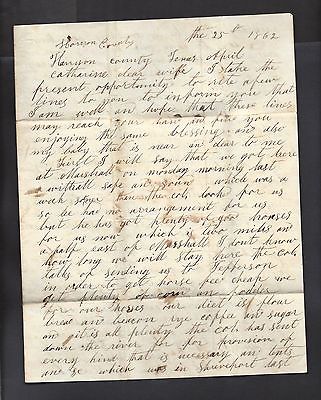 Horison County the 25th 1862
Harrison county Texas April
Catharine dear wife I take the
present opportunity to rite a few
lines to you to inform you that
I am well an hope that these lines
may reach your han in fire you
enjoying the same blessing and also
my baby that is near an dear to me
First I will say that we got here
at Marshall on monday morning last
safe an soun which was a
week soner than the col look for us
so he had no arrangement for us
but he has got plenty of goo houses
for us now which is two miles an
a half east of Marshall I don't know
how long we will stay here the col
talks of sending us to Jefferson
in order to get horse fee cheap we
get plenty of corn an fodder
for our horses our diet is flour
brea an beacon rye coffee an sugar
an it is all plenty the col has sent
down the river for for provision of
every kind that is necessary an tents
an se which wis in Shreveport last